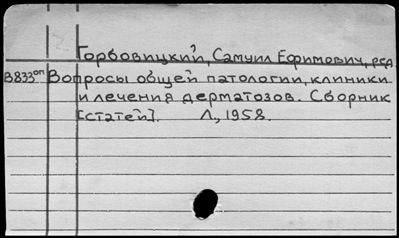 Горбовицкий, Самуил Ефимович, ред
В833оп Вопросы общей патологии, клиники
и лечения дерматозов. Сборник
[статей]. Л., 1958.